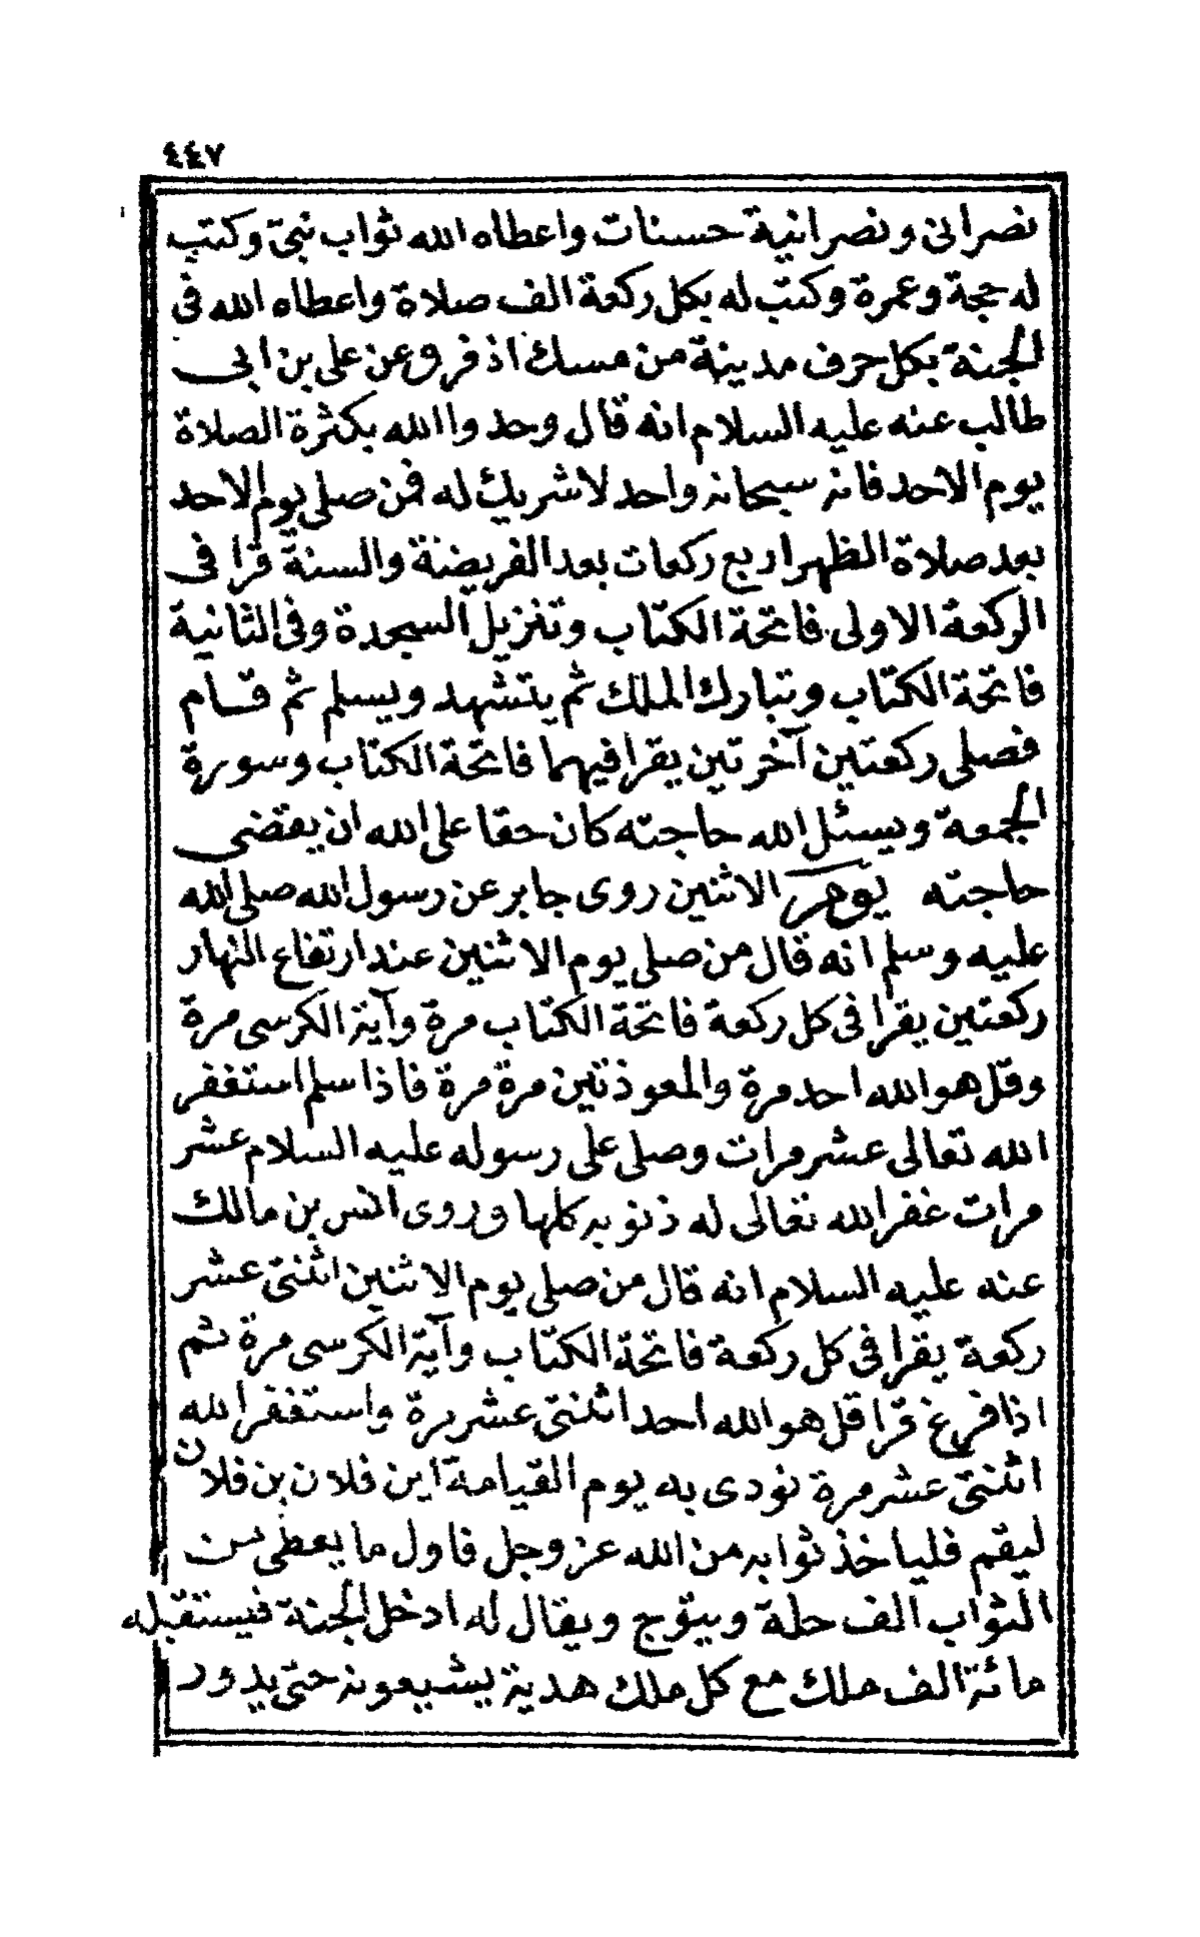 ٤٤٧
نصرانى ونصرانية حسنات واعطاه الله ثواب نبيّ وكتب
له حجة وعمرة وكتب له بكل ركعة الف صلاة واعطاه الله فى
الجنة بكل حرف مدينة من مسك اذفر وعن على بن ابى
طالب عنه عليه السلام انه قال وحدوا الله بكثرة الصلاة
يوم الاحد فانه سبحانه واحد لا شريك له فمن صلى يوم الاحد
بعد صلاة الظهر اربع ركعات بعد الفريضة والسنة قرا فى
الركعة الاولى فاتحة الكتاب وتنزيل السجدة وفى الثانية
فاتحة الكتاب وتبارك الملك ثم يتشهد ويسلم ثم قام
فصلى ركعتين آخرتين يقرا فيهما فاتحة الكتاب وسورة
الجمعة ويسئل الله حاجته كان حقا على الله ان يقضى
حاجته يوم الاثنين روى جابر عن رسول الله صلى الله
عليه وسلم انه قال من صلى يوم الاثنين عند ارتفاع النهار
ركعتين يقرا فى كل ركعة فاتحة الكتاب مرة وآية الكرسى مرة
وقل هو الله احد مرة والمعوذتين مرة مرة فاذا سلم استغفر
الله تعالى عشر مرات وصلى على رسوله عليه السلام عشر
مرات غفر الله تعالى له ذنوبه كلها وروى انس بن مالك
عنه عليه السلام انه قال من صلى يوم الاثنين اثنتى عشر
ركعة يقرا فى كل ركعة فاتحة الكتاب وآية الكرسى مرة ثم
اذا فرغ قرا قل هو الله احد اثنتى عشر مرة واستغفر الله
اثنتى عشر مرة نودى به يوم القيامة اين فلان بن فلان
ليقم فلياخذ ثوابه من الله عز وجل فاول ما يعطى من
الثواب الف حلة ويتوج ويقال له ادخل الجنة فيستقبله
مائة الف ملك مع كل ملك هدية يشيعونه حتى يدور